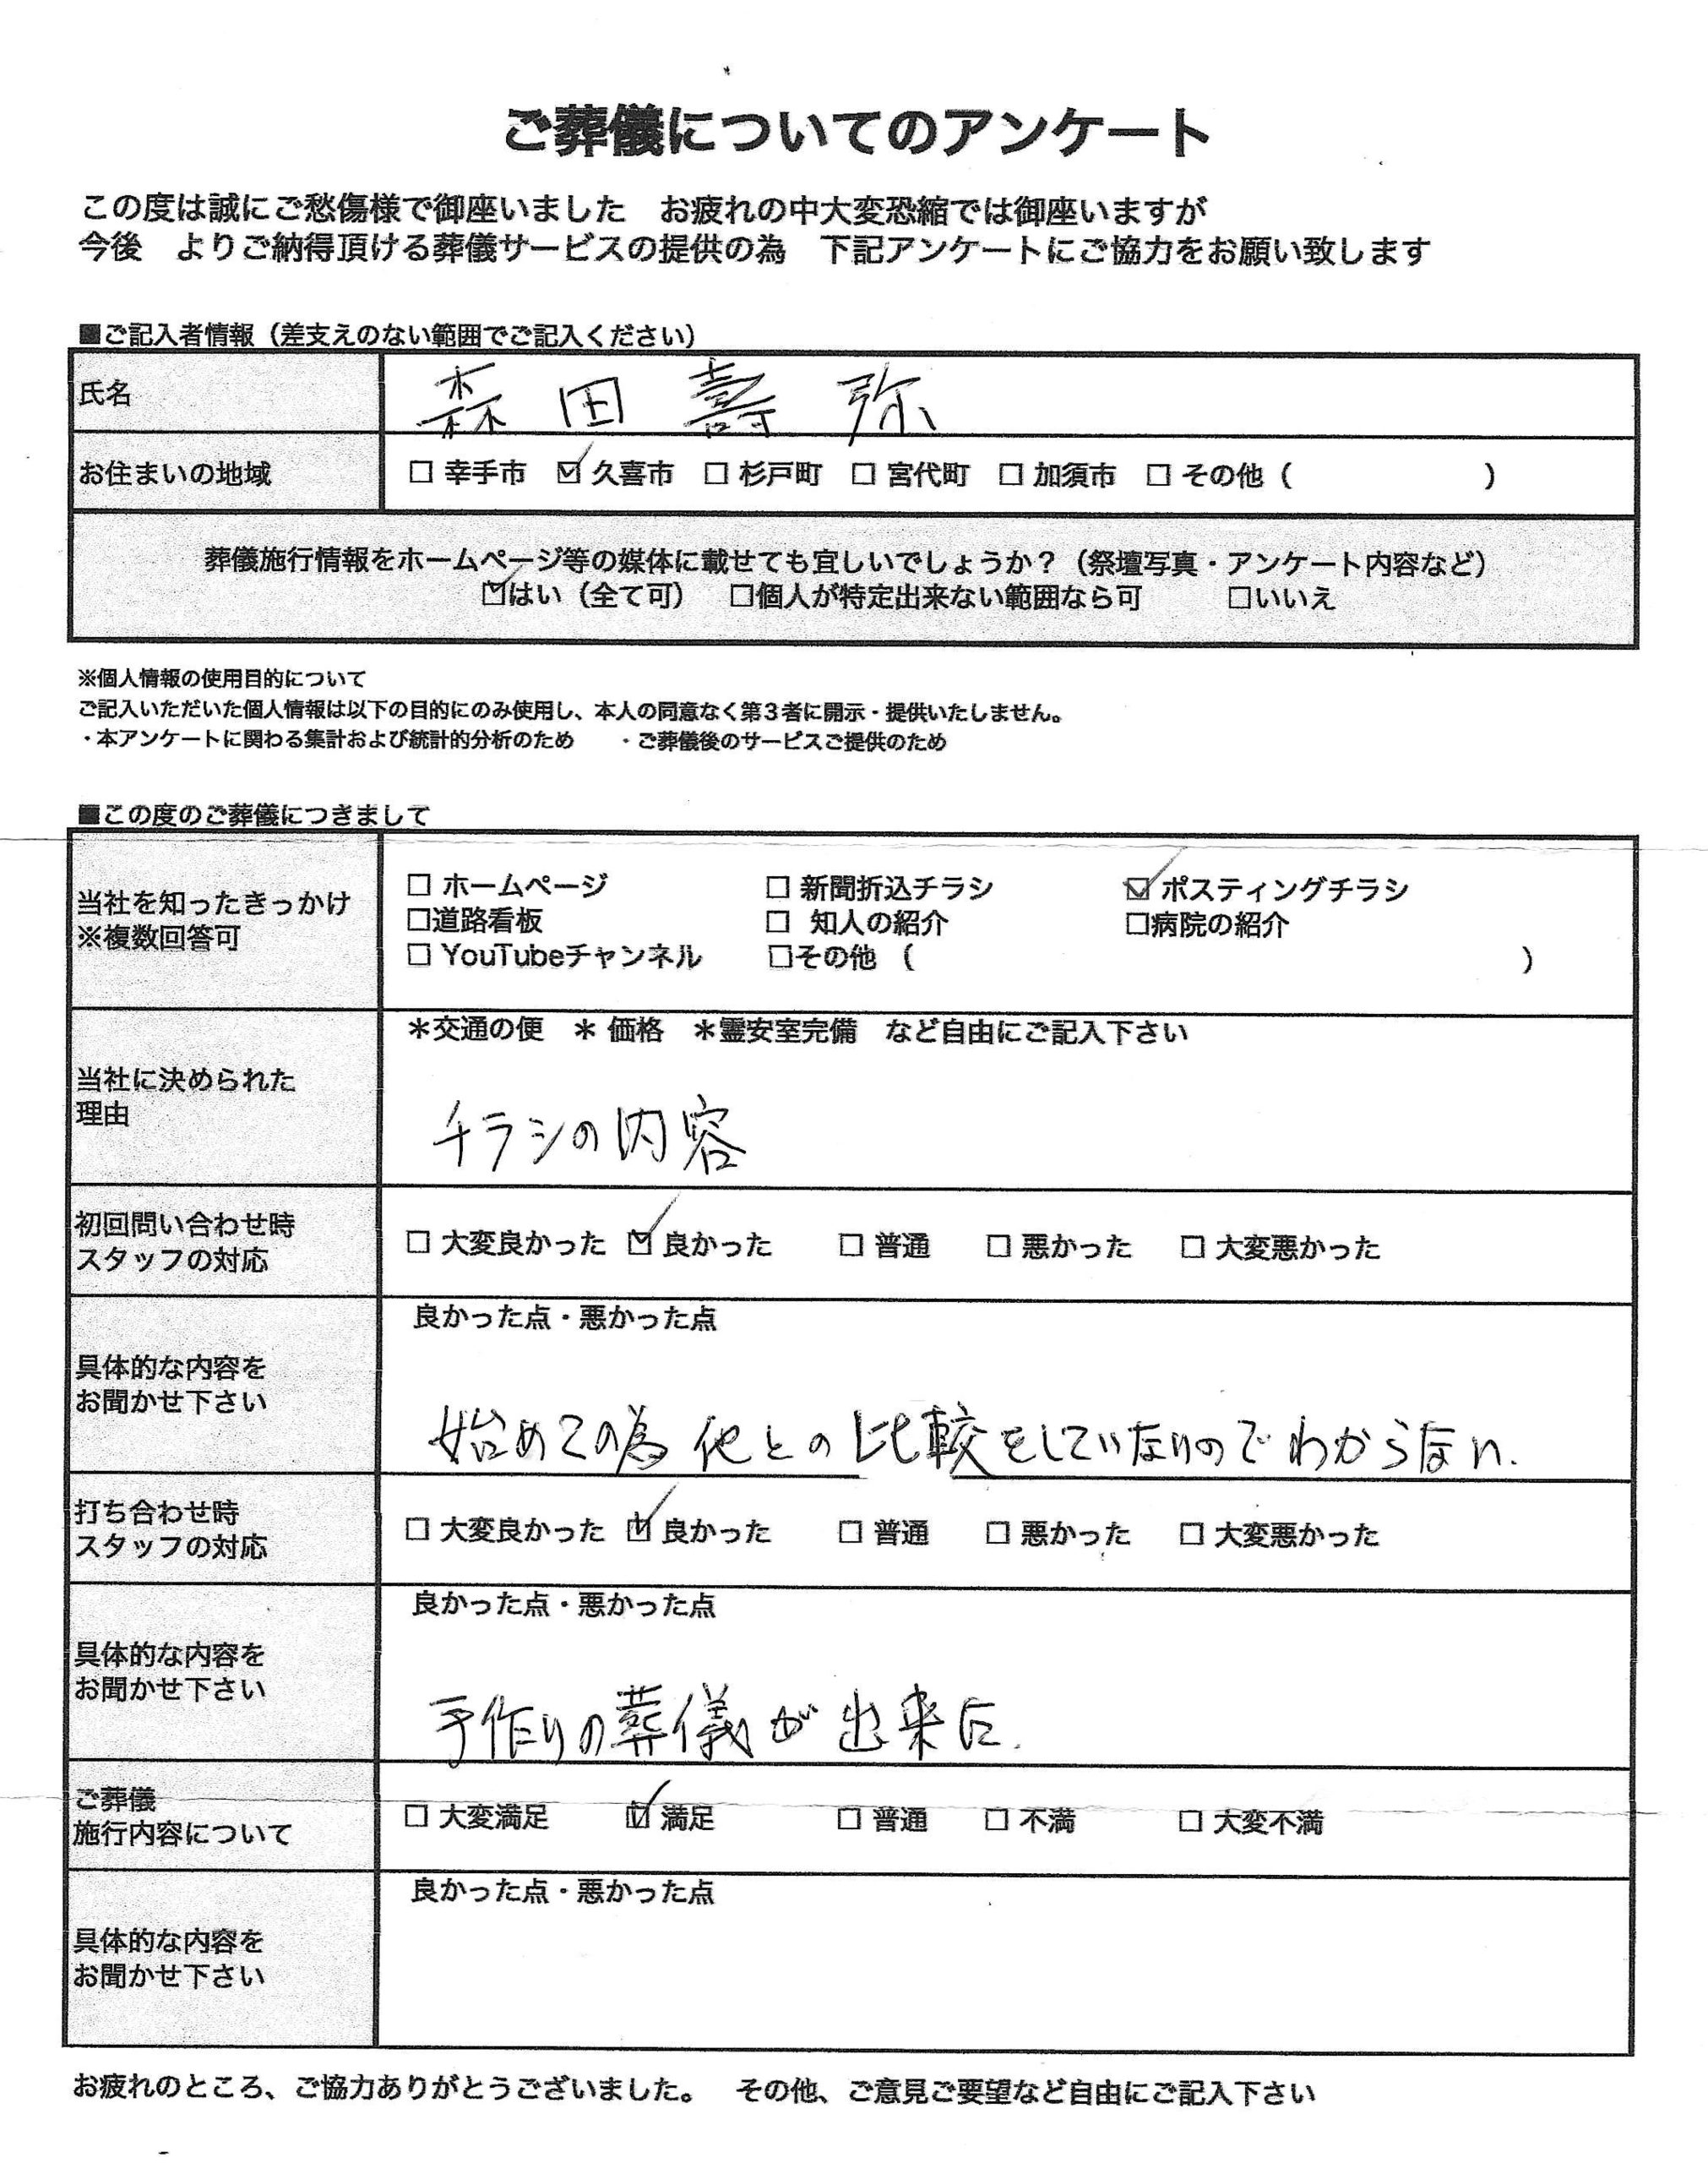 ご葬儀についてのアンケート
この度は誠にご愁傷様で御座いました　お疲れの中大変恐縮では御座いますが
今後　よりご納得頂ける葬儀サービスの提供の為　下記アンケートにご協力をお願い致します
■ご記入者情報（差支えのない範囲でご記入ください）
氏名　森田壽弥
お住まいの地域　□ 幸手市　☑ 久喜市　□ 杉戸町　□ 宮代町　□ 加須市　□ その他（　　　　　　）
葬儀施行情報をホームページ等の媒体に載せても宜しいでしょうか？（祭壇写真・アンケート内容など）
☑はい（全て可）　□個人が特定出来ない範囲なら可　　□いいえ
※個人情報の使用目的について
ご記入いただいた個人情報は以下の目的にのみ使用し、本人の同意なく第３者に開示・提供いたしません。
・本アンケートに関わる集計および統計的分析のため　　・ご葬儀後のサービスご提供のため
■この度のご葬儀につきまして
当社を知ったきっかけ
※複数回答可
□ ホームページ　□ 新聞折込チラシ　☑ ポスティングチラシ
□道路看板　□ 知人の紹介　□病院の紹介
□ YouTubeチャンネル　□その他（　　　　　　）
当社に決められた
理由
＊交通の便　＊ 価格　＊霊安室完備　など自由にご記入下さい
チラシの内容
初回問い合わせ時
スタッフの対応
□ 大変良かった　☑ 良かった　□ 普通　□ 悪かった　□ 大変悪かった
具体的な内容を
お聞かせ下さい
良かった点・悪かった点
始めての為 他との比較をしていないのでわからない.
打ち合わせ時
スタッフの対応
□ 大変良かった　☑ 良かった　□ 普通　□ 悪かった　□ 大変悪かった
具体的な内容を
お聞かせ下さい
良かった点・悪かった点
手作りの葬儀が出来た.
ご葬儀
施行内容について
□ 大変満足　☑ 満足　□ 普通　□ 不満　□ 大変不満
具体的な内容を
お聞かせ下さい
良かった点・悪かった点
お疲れのところ、ご協力ありがとうございました。　その他、ご意見ご要望など自由にご記入下さい